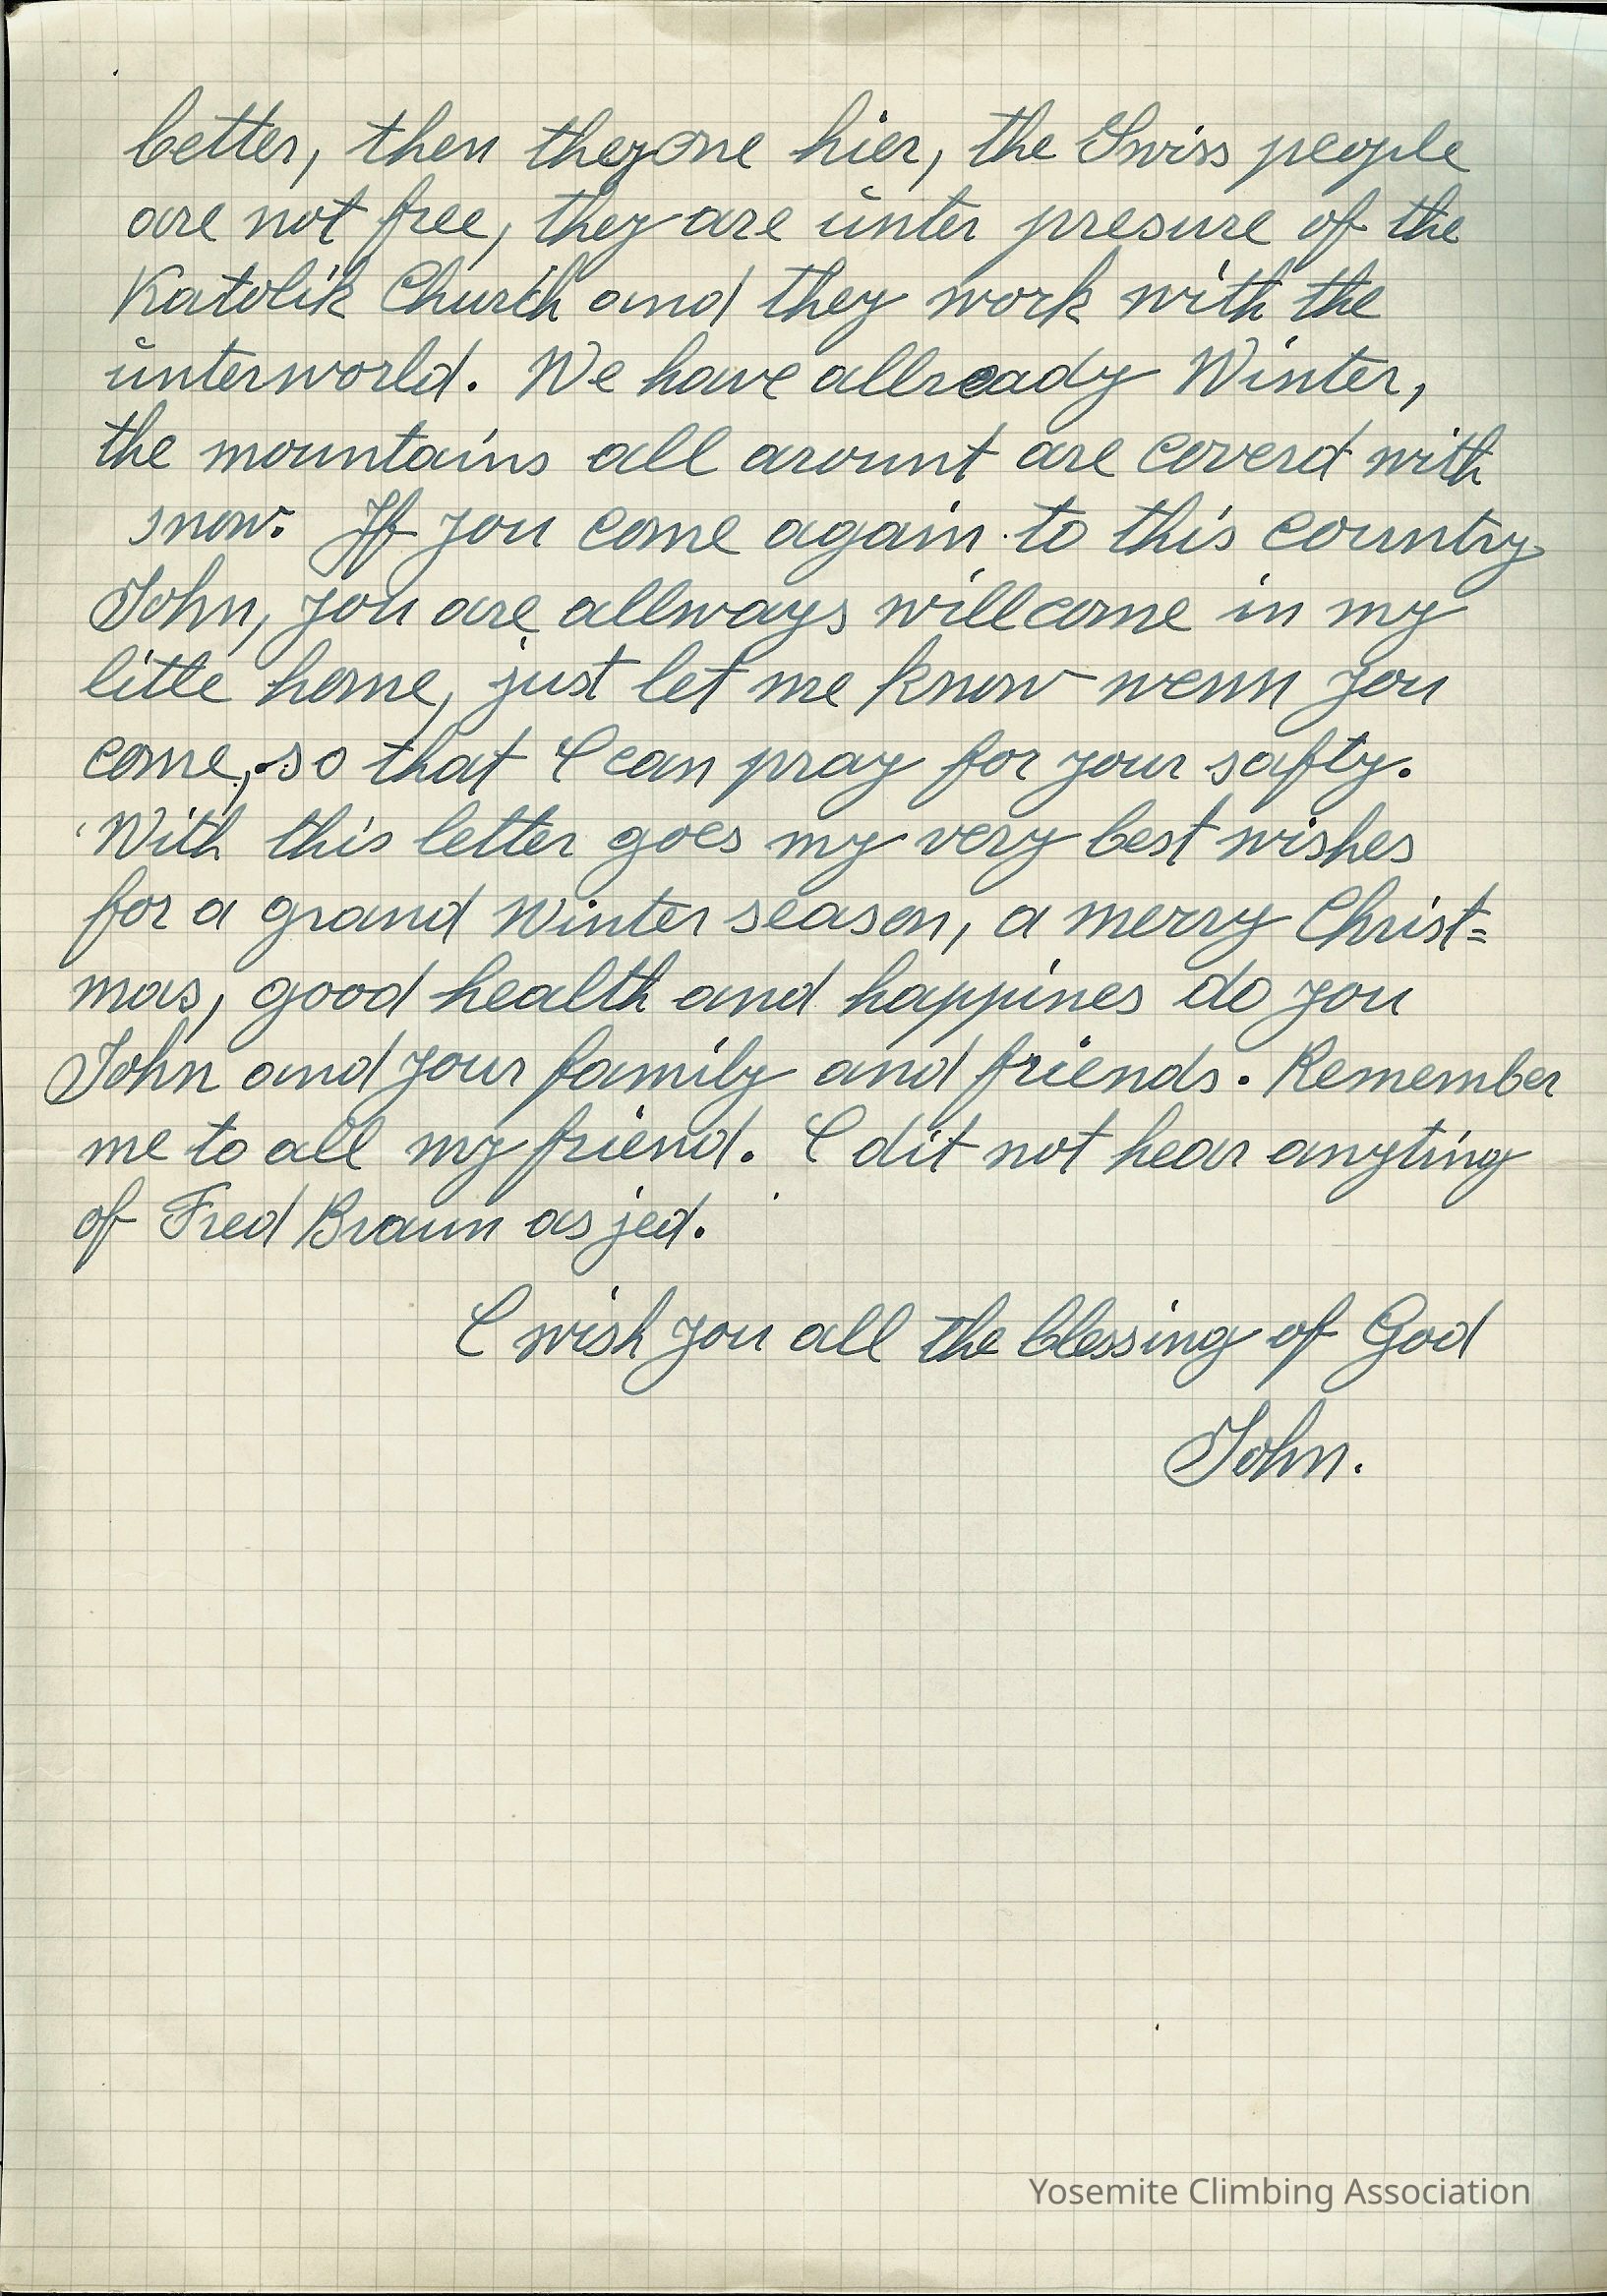 better, then they one hier, the Swiss people
are not free, they are unter presure of the
Katolik Church and they work with the
unterworld. We have allready Winter,
the mountains all arount are coverd with
snow. If you come again to this country
John, you are allways willcome in my
little home, just let me know wenn you
come, so that I can pray for your safty.
With this letter goes my very best wishes
for a grand Winter season, a merry Christ=
mas, good health and happines do you
John and your family and friends. Remember
me to all my friend. I dit not hear anyting
of Fred Braun as jed.
I wish you all the blessing of God
John.
Yosemite Climbing Association